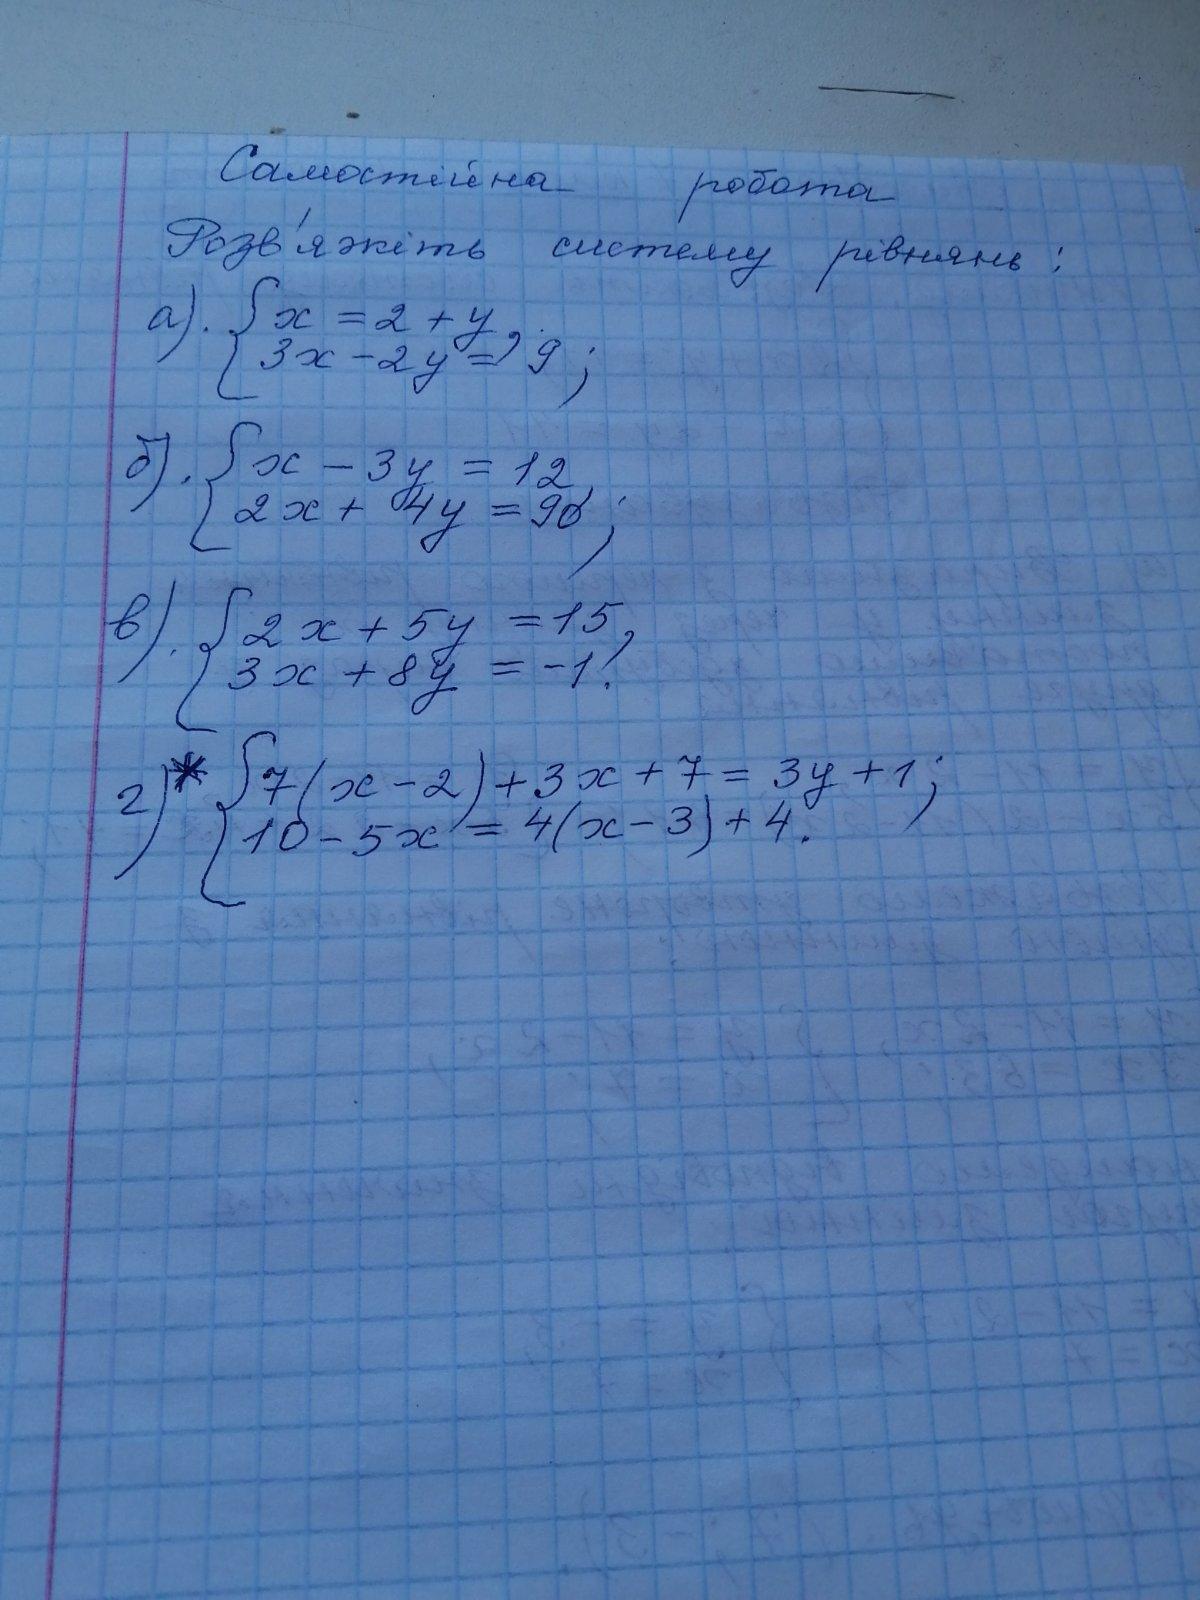 Самостійна робота
Розв'яжіть систему рівнянь:
а). { x = 2 + y,
3x - 2y = 9;
б). { x - 3y = 12,
2x + 4y = 90;
в). { 2x + 5y = 15,
3x + 8y = -1.
г)* { 7(x - 2) + 3x + 7 = 3y + 1;
10 - 5x = 4(x - 3) + 4.